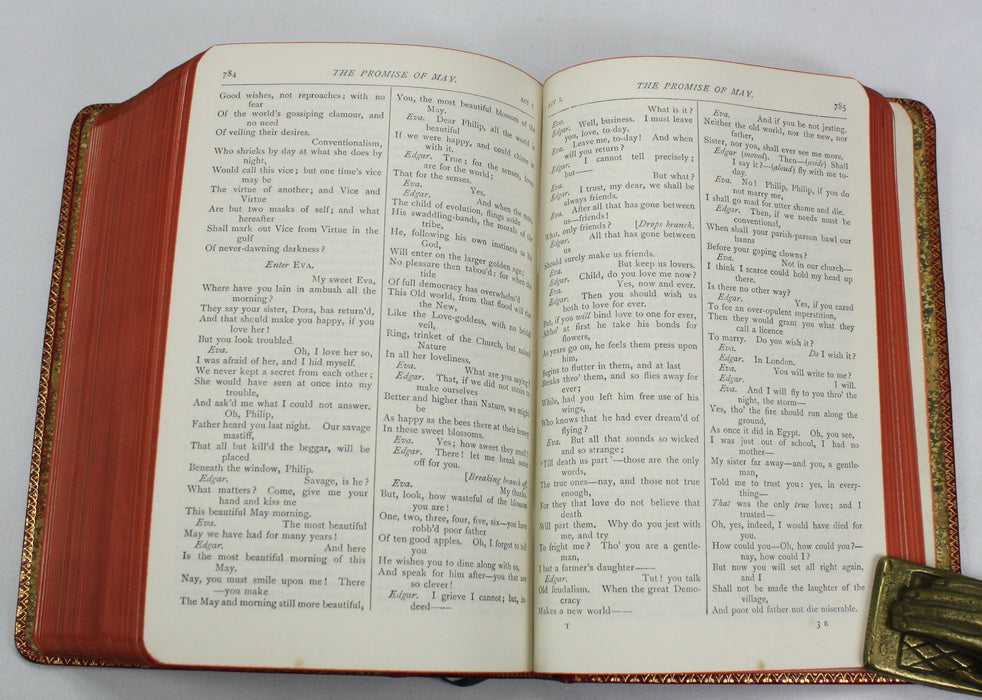 784
THE PROMISE OF MAY.
ACT I.
Good wishes, not reproaches; with no
fear
Of the world's gossiping clamour, and
no need
Of veiling their desires.
Conventionalism,
Who shrieks by day at what she does by
night,
Would call this vice; but one time's vice
may be
The virtue of another; and Vice and
Virtue
Are but two masks of self; and what
hereafter
Shall mark out Vice from Virtue in the
gulf
Of never-dawning darkness?
Enter EVA.
My sweet Eva,
Where have you lain in ambush all the
morning?
They say your sister, Dora, has return'd,
And that should make you happy, if you
love her!
But you look troubled.
Eva. Oh, I love her so,
I was afraid of her, and I hid myself.
We never kept a secret from each other;
She would have seen at once into my
trouble,
And ask'd me what I could not answer.
Oh, Philip,
Father heard you last night. Our savage
mastiff,
That all but kill'd the beggar, will be
placed
Beneath the window, Philip.
Edgar. Savage, is he?
What matters? Come, give me your
hand and kiss me
This beautiful May-morning.
Eva. The most beautiful
May we have had for many years!
Edgar. And here
Is the most beautiful morning of this
May.
Nay, you must smile upon me! There
—you make
The May and morning still more beautiful,
You, the most beautiful blossom of the
May.
Eva. Dear Philip, all the world is
beautiful
If we were happy, and could chime in
with it.
Edgar. True; for the senses, love,
are for the world;
That for the senses.
Eva. Yes.
Edgar. And when the man,
The child of evolution, flings aside
His swaddling-bands, the morals of the
tribe,
He, following his own instincts as his
God,
Will enter on the larger golden age;
No pleasure then taboo'd: for when the
tide
Of full democracy has overwhelm'd
This Old world, from that flood will rise
the New,
Like the Love-goddess, with no bridal
veil,
Ring, trinket of the Church, but naked
Nature
In all her loveliness.
Eva. What are you saying?
Edgar. That, if we did not strain to
make ourselves
Better and higher than Nature, we might
be
As happy as the bees there at their honey
In these sweet blossoms.
Eva. Yes; how sweet they smell!
Edgar. There! let me break some
off for you.
[Breaking branch off.
Eva. My thanks.
But, look, how wasteful of the blossom
you are!
One, two, three, four, five, six—you have
robb'd poor father
Of ten good apples. Oh, I forgot to tell
you
He wishes you to dine along with us,
And speak for him after—you that are
so clever!
Edgar. I grieve I cannot; but, in-
deed——
ACT I.
THE PROMISE OF MAY.
785
Eva. What is it?
Edgar. Well, business. I must leave
you, love, to-day.
Eva. Leave me, to-day! And when
will you return?
Edgar. I cannot tell precisely;
but——
Eva. But what?
Edgar. I trust, my dear, we shall be
always friends.
Eva. After all that has gone between
us—friends!
What, only friends? [Drops branch.
Edgar. All that has gone between
us
Should surely make us friends.
Eva. But keep us lovers.
Edgar. Child, do you love me now?
Eva. Yes, now and ever.
Edgar. Then you should wish us
both to love for ever.
But, if you will bind love to one for ever,
Altho' at first he take his bonds for
flowers,
As years go on, he feels them press upon
him,
Begins to flutter in them, and at last
Breaks thro' them, and so flies away for
ever;
While, had you left him free use of his
wings,
Who knows that he had ever dream'd of
flying?
Eva. But all that sounds so wicked
and so strange;
'Till death us part'—those are the only
words,
The true ones—nay, and those not true
enough,
For they that love do not believe that
death
Will part them. Why do you jest with
me, and try
To fright me? Tho' you are a gentle-
man,
I but a farmer's daughter——
Edgar. Tut! you talk
Old feudalism. When the great Demo-
cracy
Makes a new world——
Eva. And if you be not jesting,
Neither the old world, nor the new, nor
father,
Sister, nor you, shall ever see me more.
Edgar (moved). Then—(aside) Shall
I say it?—(aloud) fly with me to-
day.
Eva. No! Philip, Philip, if you do
not marry me,
I shall go mad for utter shame and die.
Edgar. Then, if we needs must be
conventional,
When shall your parish-parson bawl our
banns
Before your gaping clowns?
Eva. Not in our church—
I think I scarce could hold my head up
there.
Is there no other way?
Edgar. Yes, if you cared
To fee an over-opulent superstition,
Then they would grant you what they
call a licence
To marry. Do you wish it?
Eva. Do I wish it?
Edgar. In London.
Eva. You will write to me?
Edgar. I will.
Eva. And I will fly to you thro' the
night, the storm—
Yes, tho' the fire should run along the
ground,
As once it did in Egypt. Oh, you see,
I was just out of school, I had no
mother—
My sister far away—and you, a gentle-
man,
Told me to trust you: yes, in every-
thing—
That was the only true love; and I
trusted—
Oh, yes, indeed, I would have died for
you.
How could you—Oh, how could you?—
nay, how could I?
But now you will set all right again,
and I
Shall not be made the laughter of the
village,
And poor old father not die miserable.
T
3 E